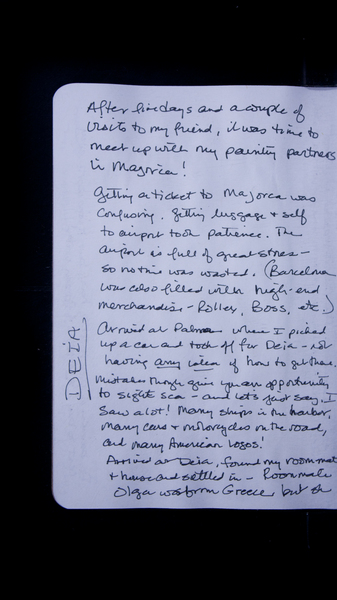 After five days and a couple of
visits to my friend, it was time to
meet up with my painting partners
in Majorca!
Getting a ticket to Majorca was
confusing. Getting luggage & self
to airport took patience. The
airport is full of great stores –
so no time was wasted. (Barcelona
was also filled with high-end
merchandise – Rollex, Boss, etc.)
DEIA
Arrived at Palma when I picked
up a car and took off for Deia – not
having any idea of how to get there.
Mistakes though give you an opportunity
to sight see – and let's just say, I
saw a lot! Many ships in the harbor,
many cars & motorcycles on the road,
and many American logos!
Arrived at Deia, found my roommate
& house and settled in – Roommate
Olga was from Greece, but sh